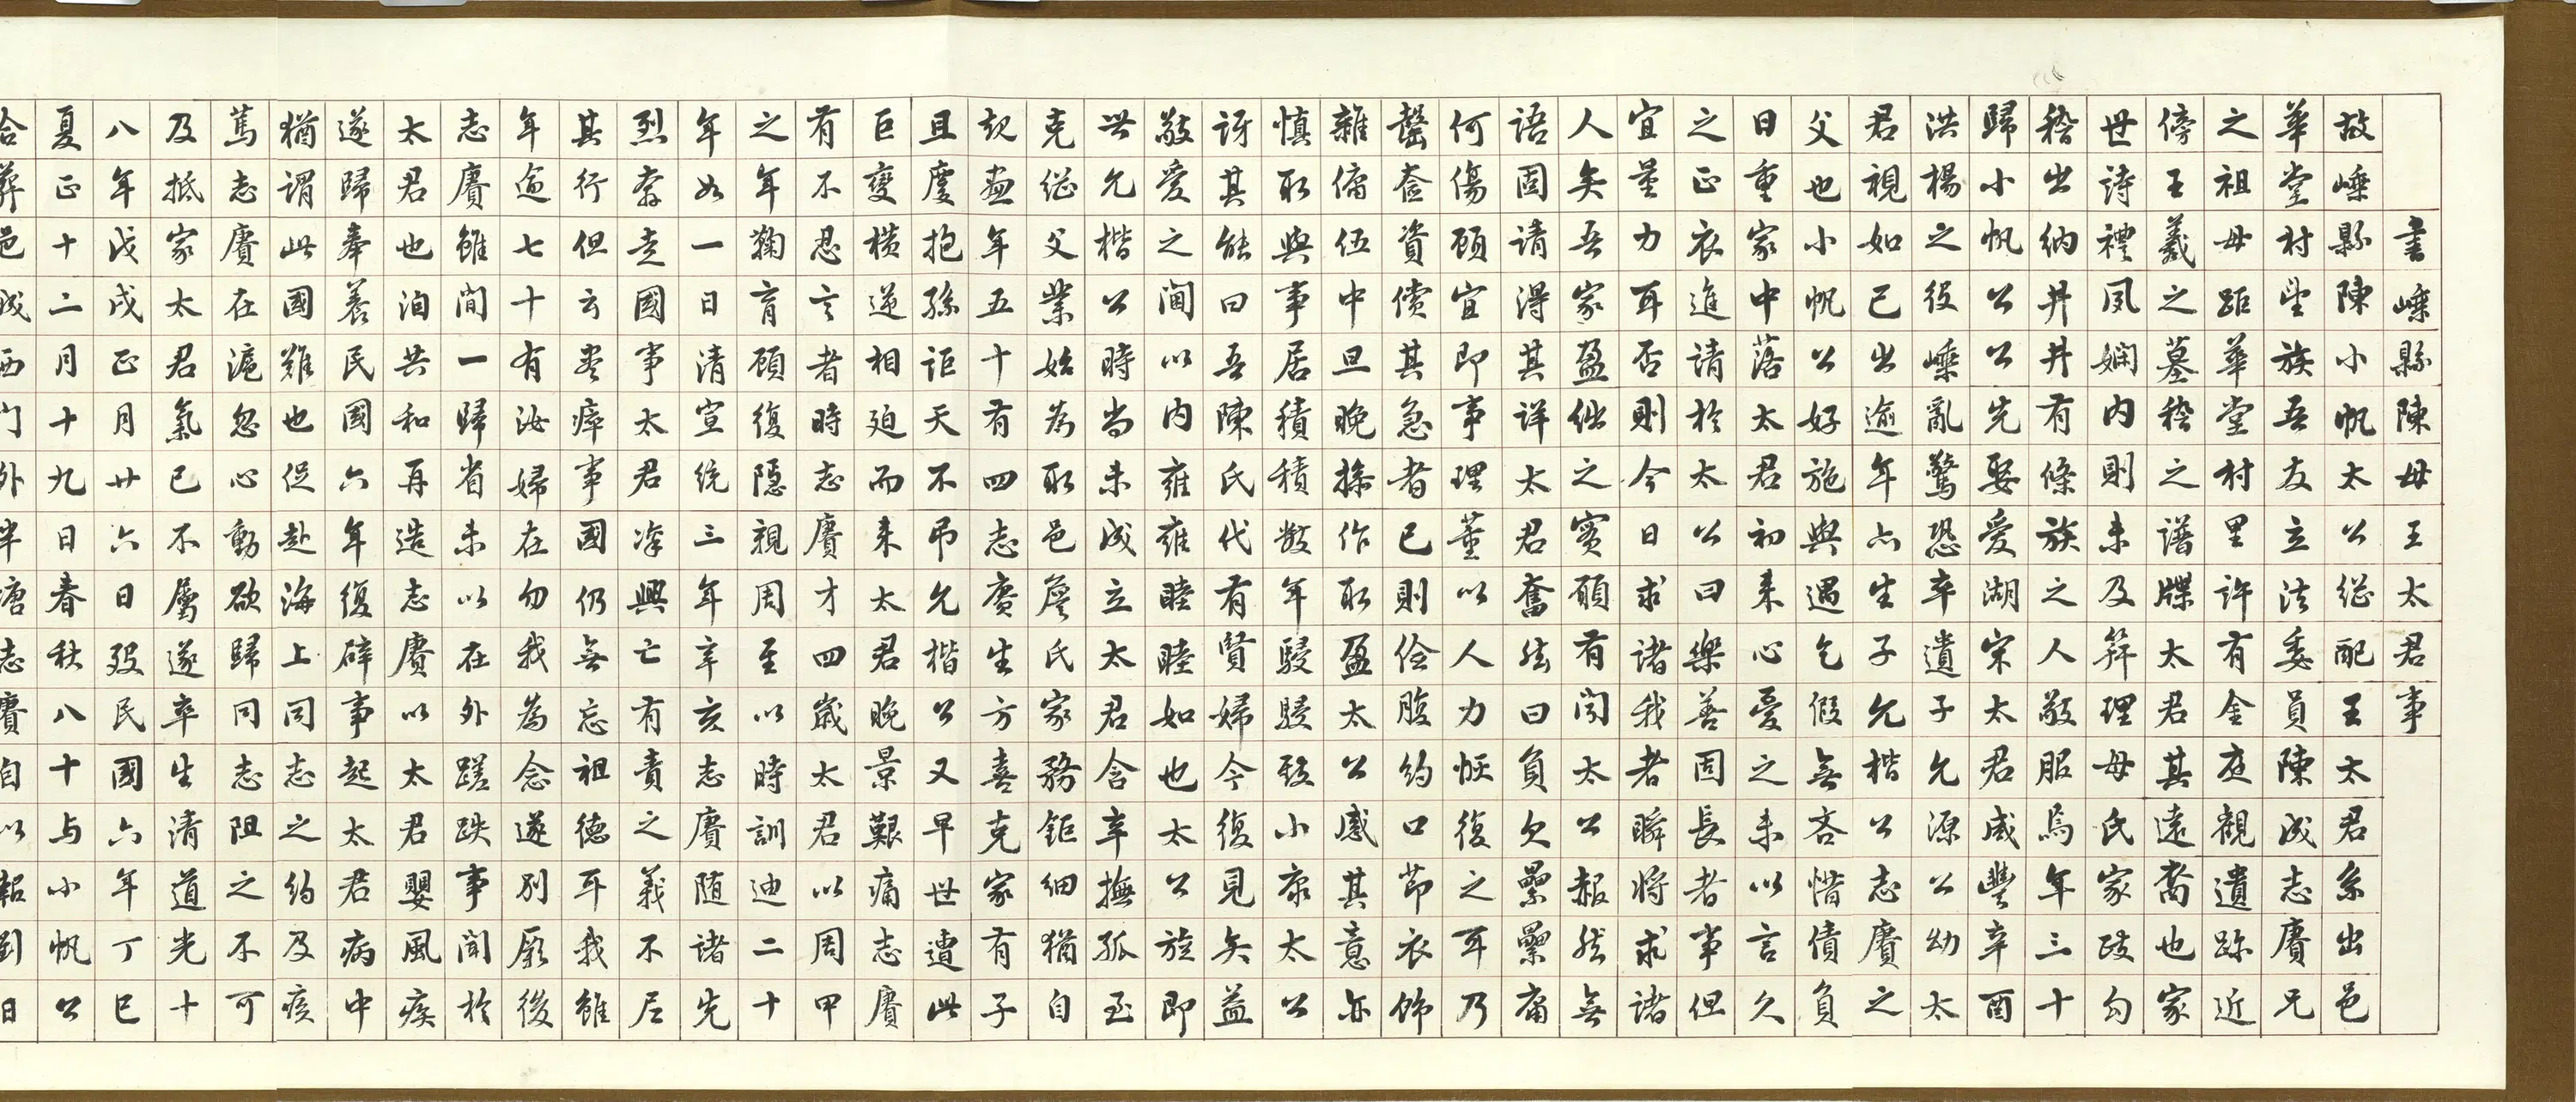 書嵊縣陳母王太君事
故嵊縣陳小帆太公繼配王太君系出邑
華堂村望族吾友立法委員陳成志賡兄
之祖母距華堂村里許有金庭觀遺跡近
傍王羲之墓稽之譜牒太君其遠裔也家
世詩禮夙嫻內則未及筓理母氏家政勾
稽出納井井有條族之人敬服焉年三十
歸小帆公公先娶愛湖宋太君咸豐辛酉
洪楊之役嵊亂驚恐卒遺子允源公幼太
君視如己出逾年亦生子允楷公志賡之
父也小帆公好施與遇乞假無吝惜債負
日重家中落太君初來心憂之未以言久
之正衣進請於太公曰樂善固長者事但
宜量力耳否則今日求諸我者瞬將求諸
人矣吾家盈絀之實願有聞太公赧然無
語固請得其詳太君奮然曰負欠纍纍庸
何傷顧宜即事理董以人力恢復之耳乃
罄奩資償其急者已則儉腹約口節衣飾
雜傭伍中旦晚操作取盈太公感其意亦
慎取與事居積積數年駸駸致小康太公
訝其能曰吾陳氏代有賢婦今復見矣益
敬愛之閫以內雍雍睦睦如也太公旋即
世允楷公時尚未成立太君含辛撫孤至
克繼父業始為取邑詹氏家務鉅細猶自
規畫年五十有四志賡生方喜克家有子
且慶抱孫詎天不弔允楷公又早世遭此
巨變橫逆相迫而來太君晚景艱痛志賡
有不忍言者時志賡才四歲太君以周甲
之年鞠育顧復隱視周至以時訓迪二十
年如一日清宣統三年辛亥志賡隨諸先
烈奔走國事太君深興亡有責之義不尼
其行但云盡瘁事國仍無忘祖德耳我雖
年逾七十有汝婦在勿我為念遂別厥後
志賡雖間一歸省未以在外蹉跌事聞於
太君也洎共和再造志賡以太君嬰風疾
遂歸奉養民國六年復辟事起太君病中
猶謂此國難也促赴海上同志之約及疾
篤志賡在滬忽心動欲歸同志阻之不可
及抵家太君氣已不屬遂卒生清道光十
八年戊戌正月廿六日歿民國六年丁巳
夏正十二月十九日春秋八十与小帆公
合葬邑城西門外半唐志賡自以報劉日